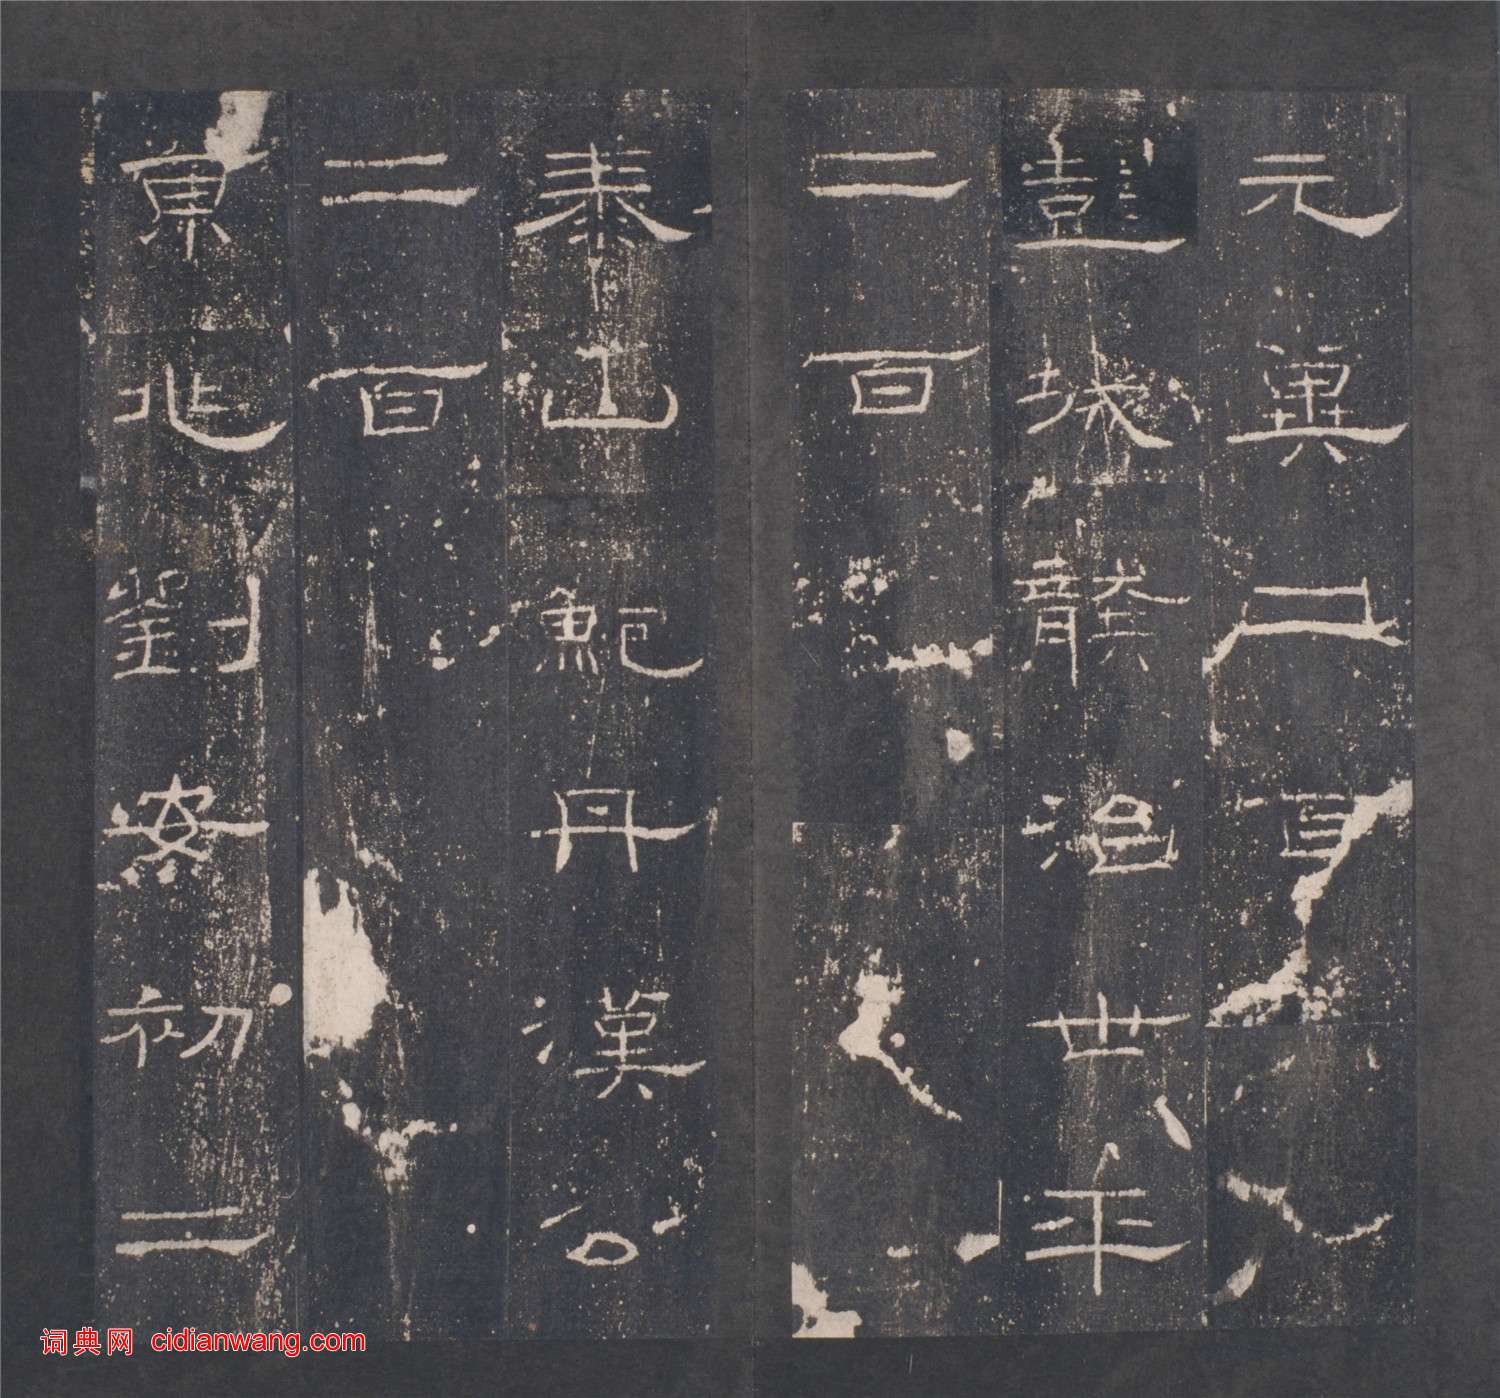 元冀二百
彭城龔治世平
二百
泰山鮑丹漢公
二百
京兆劉安初二
词典网 cidianwang.com